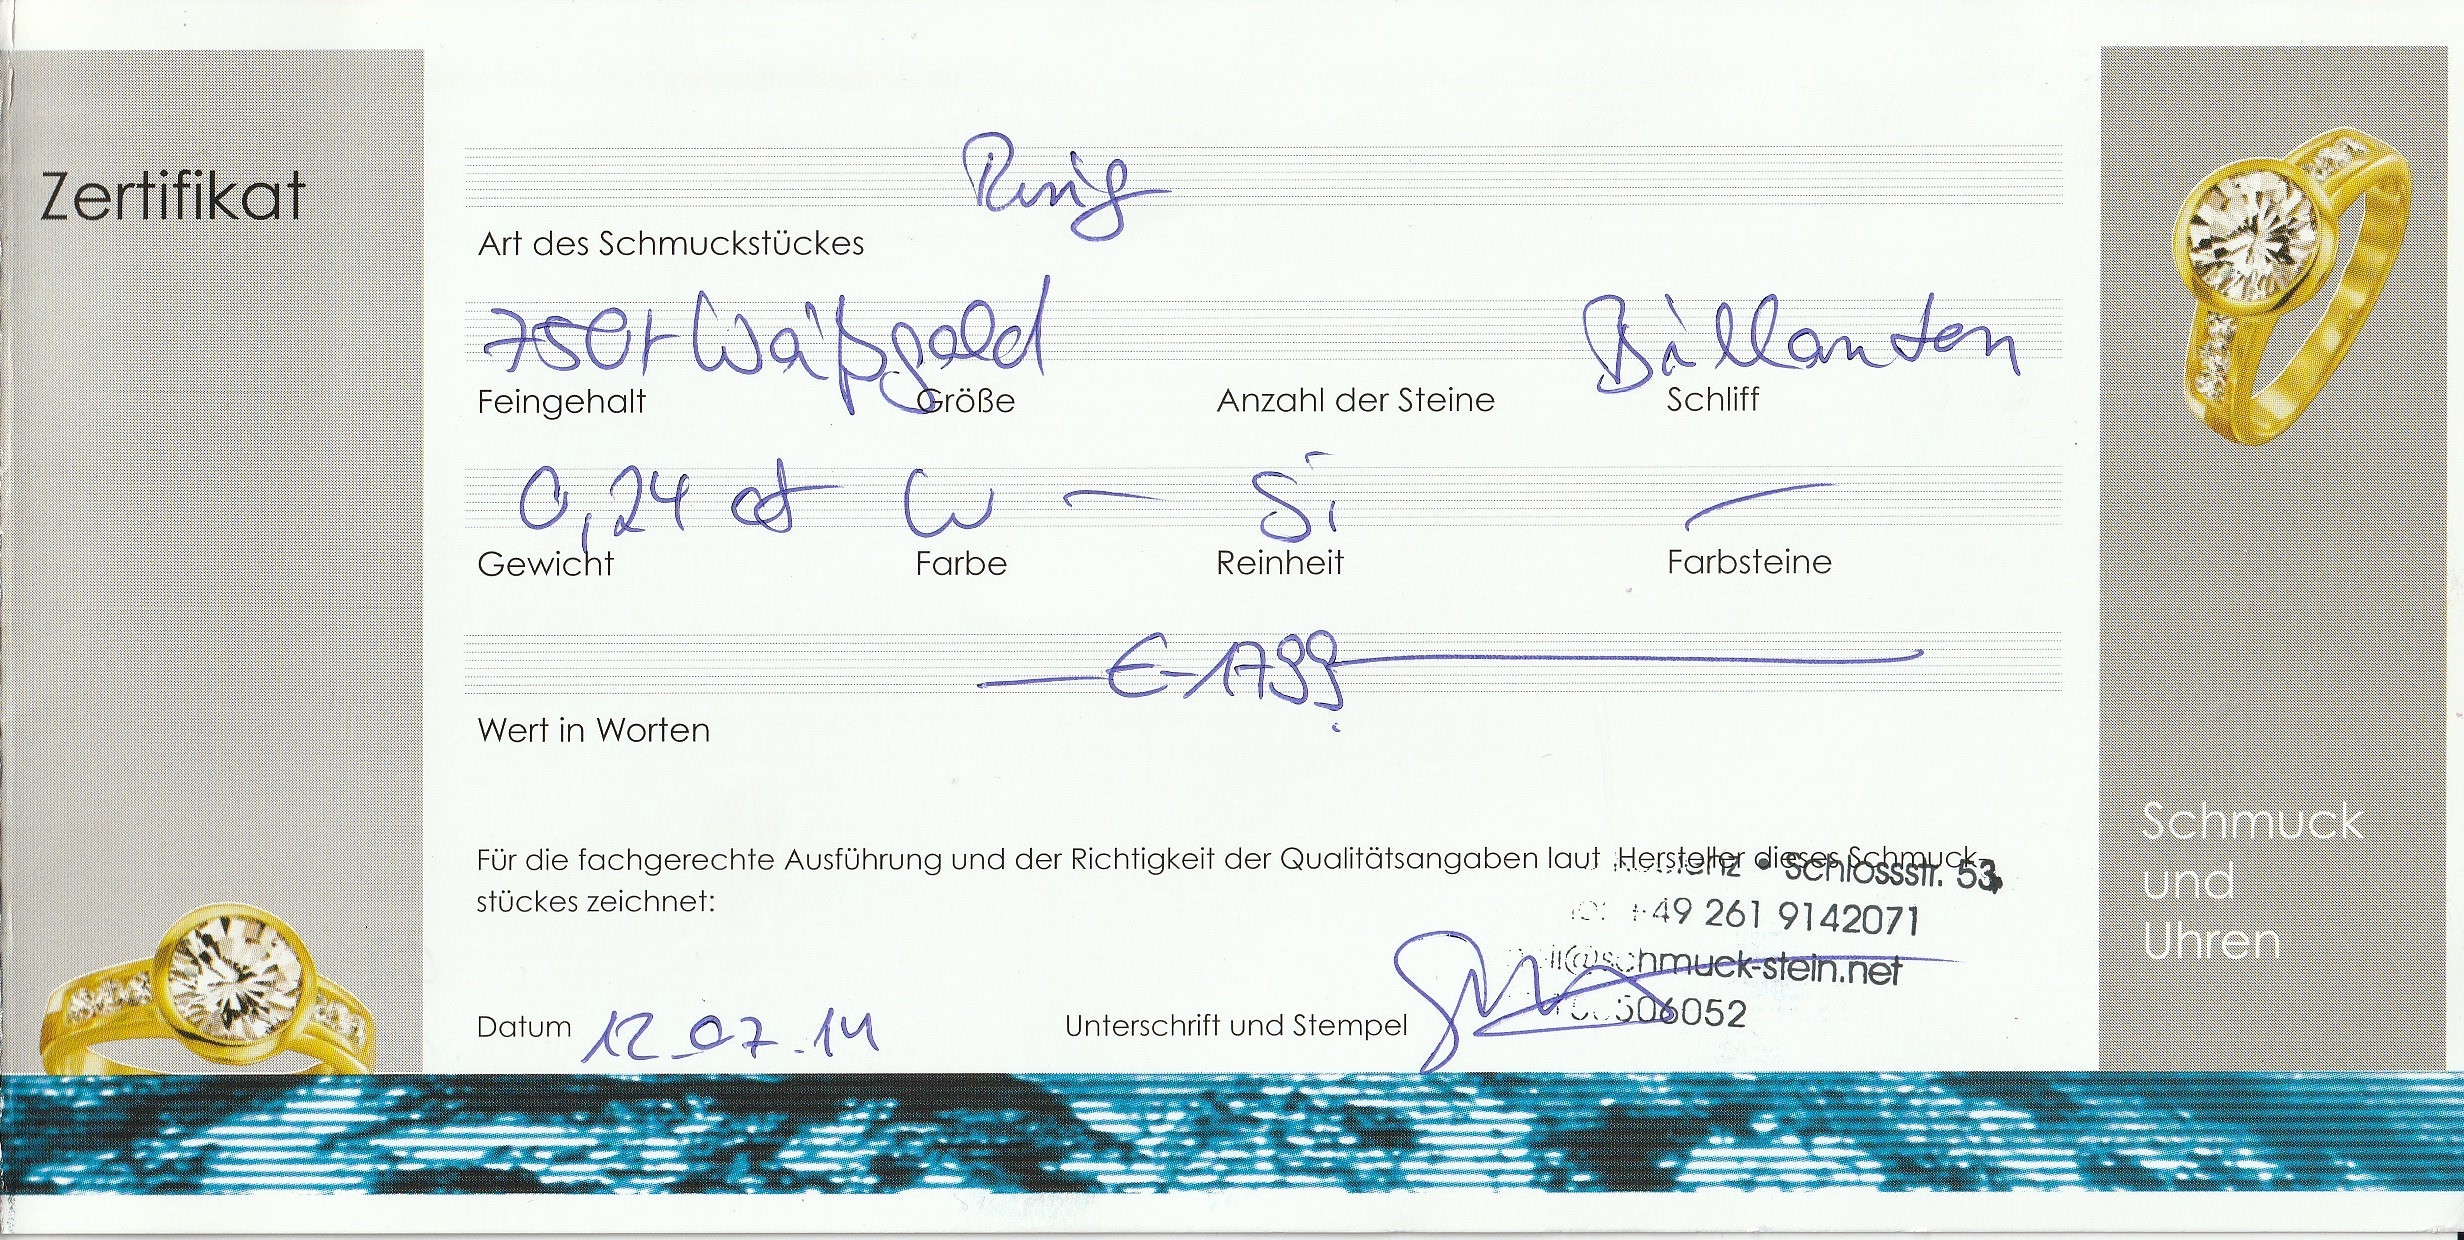 Zertifikat
Ring
Art des Schmuckstückes
750er Weißgold Brillanten
Feingehalt Größe Anzahl der Steine Schliff
0,24 ct W — Si —
Gewicht Farbe Reinheit Farbsteine
— € - 1799 —
Wert in Worten
Für die fachgerechte Ausführung und der Richtigkeit der Qualitätsangaben laut Hersteller dieses Schmuck-
stückes zeichnet:
Schlossstr. 53
+49 261 9142071
schmuck-stein.net
506052
Datum 12.07.14 Unterschrift und Stempel
Schmuck
und
Uhren